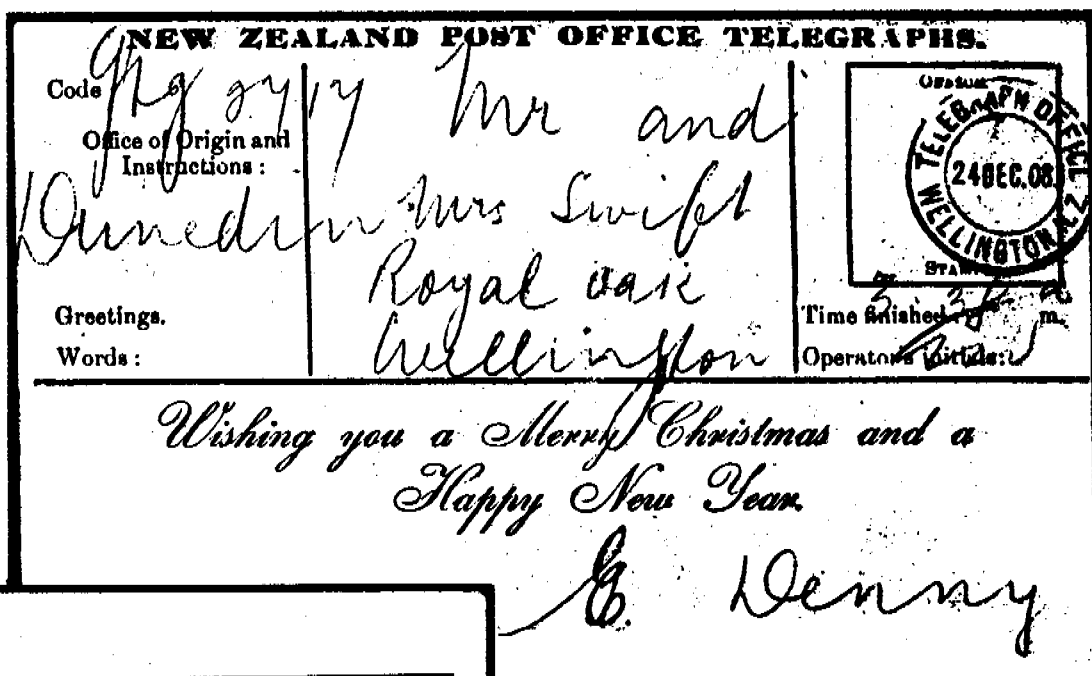 NEW ZEALAND POST OFFICE TELEGRAPHS.
Code
Office of Origin and
Instructions :
Dunedin
Greetings.
Words :
Mr and
Mrs Swift
Royal oak
Wellington
TELEGRAPH OFFICE
24 DEC. 08
WELLINGTON N.Z.
Time finished
m.
Operator's initials:
Wishing you a Merry Christmas and a
Happy New Year.
E. Denny